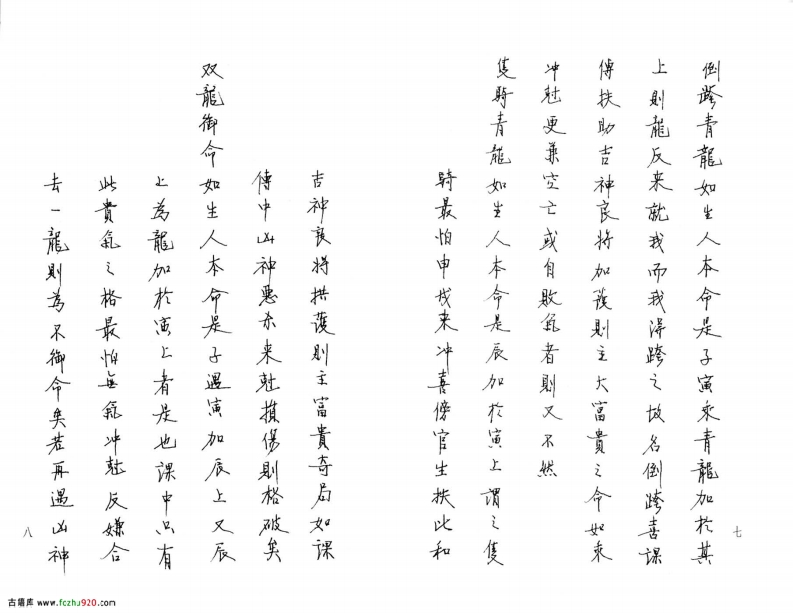 倒跨青龍如生人本命是子寅乘青龍加於其
上則龍反来就我而我得跨之故名倒跨喜課
傳扶助吉神良將加護則主大富貴之命如乘
冲尅更兼空亡或自敗氣者則又不然
隻騎青龍如生人本命是辰加於寅上謂之隻
騎最怕申戌来冲喜傍官生扶此和
七
吉神良將拱護則主富貴奇局如課
傳中凶神惡杀来尅損傷則格破矣
双龍御命如生人本命是子遇寅加辰上又辰
上為龍加於寅上者是也課中只有
此貴氣之格最怕無氣冲尅反嫌合
去一龍則為不御命矣若再遇凶神
八
古籍库 www.fozhu920.com